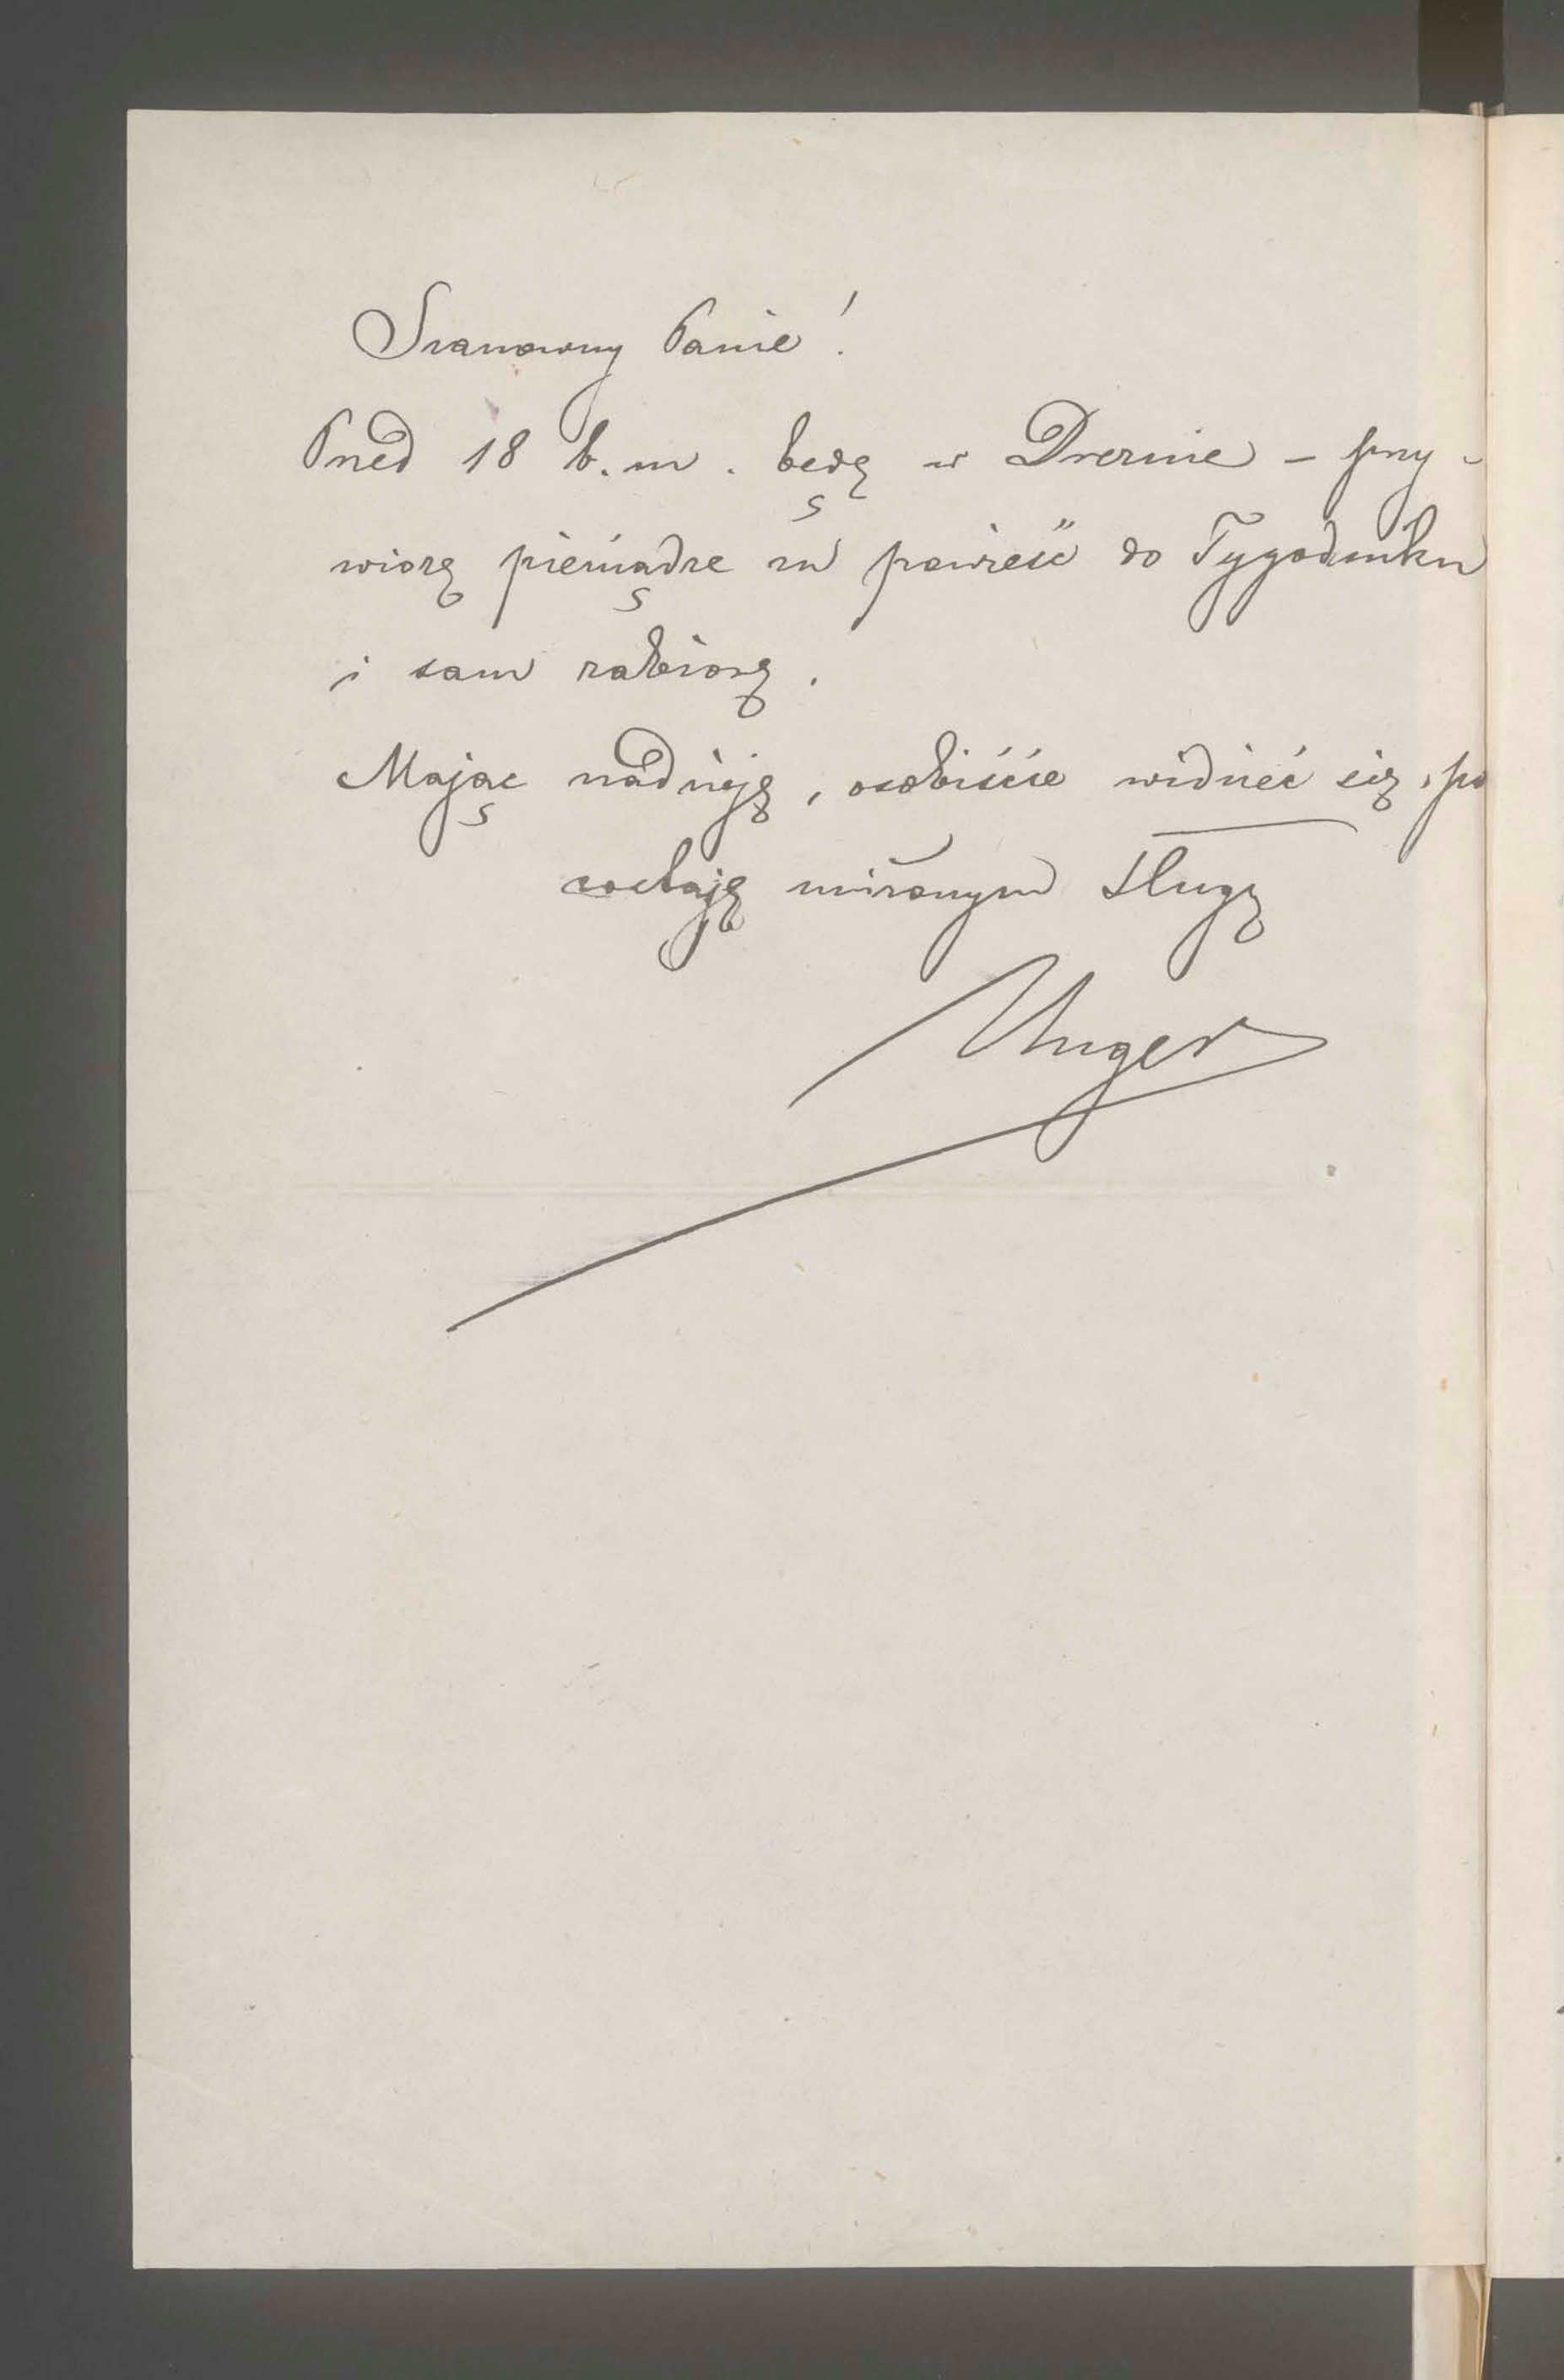 Szanowny Panie!
Przed 18 b.m. będę w Dreznie – przy-
wiozę pieniądze za powieść do Tygodnika
i sam zabiorę.
Mając nadzieję, osobiście widzieć się, po
zostaję uniżonym sługą
Unger